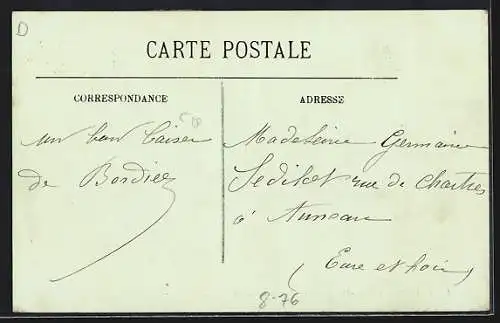 D
CARTE POSTALE
CORRESPONDANCE
ADRESSE
un bon baiser
de Bordier
Madeleine Germaine
Sedillot rue de Chartres
à Auneau
(Eure et Loir)
8-76